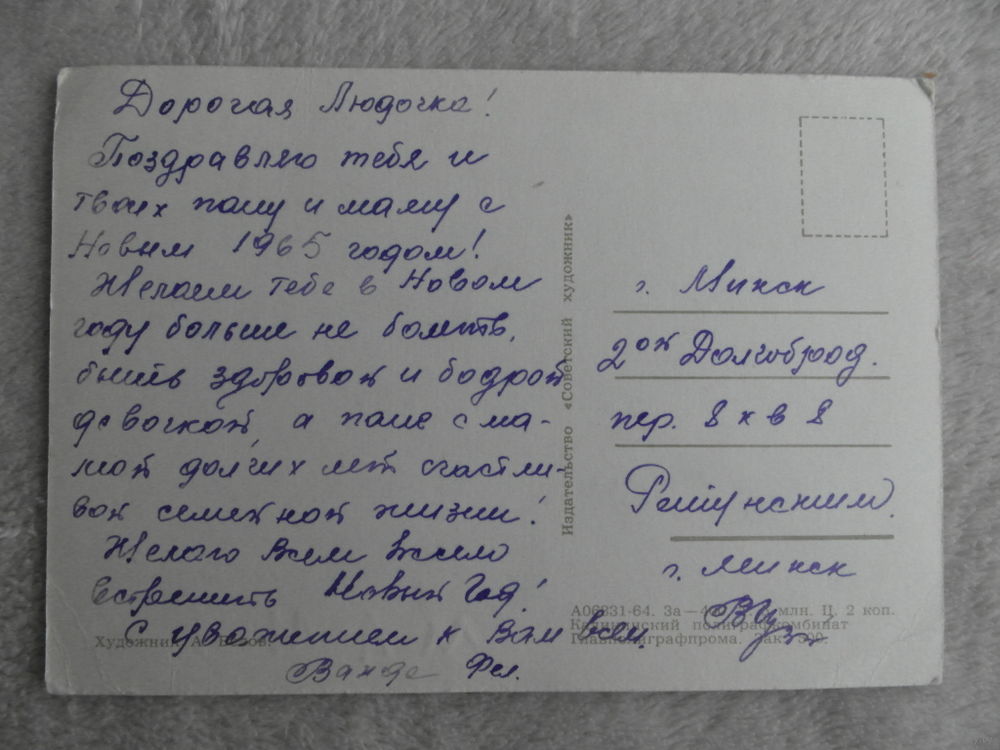 Дорогая Людочка!
Поздравляю тебя и
твоих папу и маму с
Новым 1965 годом!
Желаем тебе в Новом
году больше не болеть,
быть здоровой и бодрой
девочкой, а папе с ма-
мой долгих лет счастли-
вой семейной жизни!
Желаю Всем весело
встретить Новый Год!
С уважением к Вам всем.
Ванда Фел.
Издательство «Советский художник»
г. Минск
2ой Долгоброд.
пер. 8 кв 8
г. Минск
А06331-64. За—4 млн. Ц. 2 коп.
Калининский полиграфкомбинат
Главполиграфпрома. Зак.
Художник А.